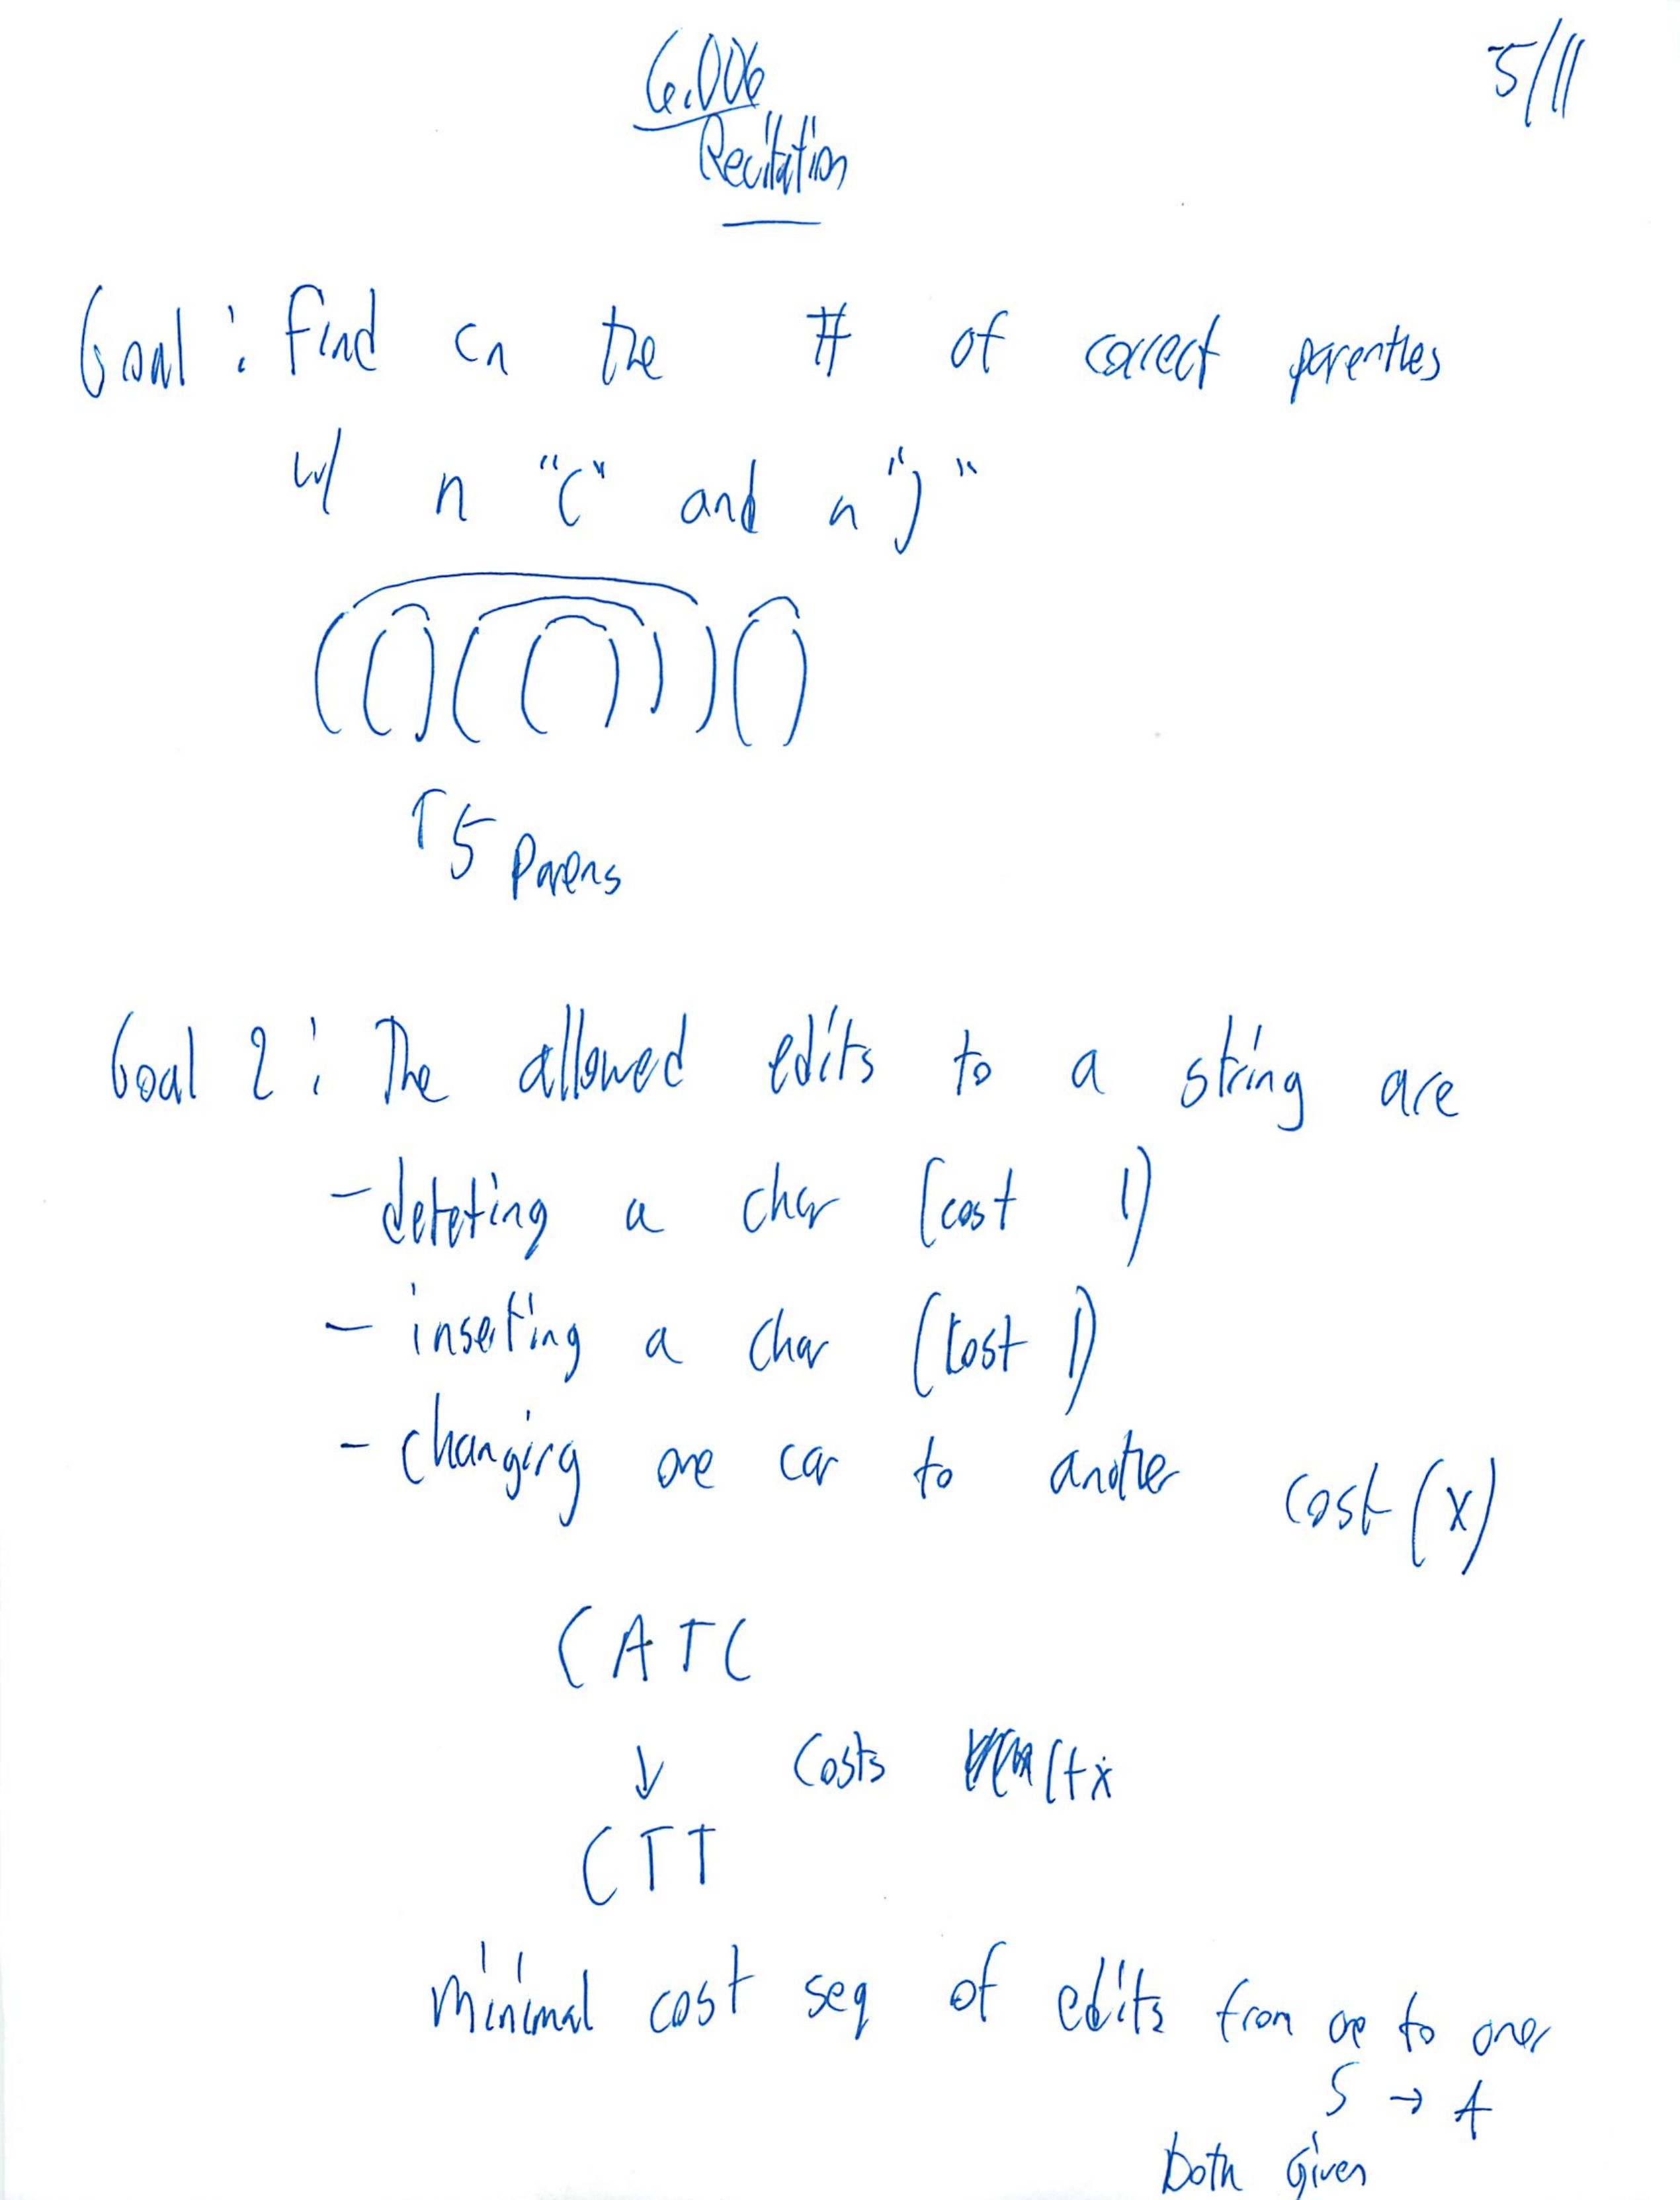 6.006
Recitation
5/11
Goal: Find cn the # of correct parenthes
w/ n "(" and n ")"
(()(()))()
↑ 5 parens
Goal 2: The allowed edits to a string are
- deleting a char (cost 1)
- inserting a char (cost 1)
- changing one car to another cost (x)
CATC
↓ costs 1+x
CTT
minimal cost seq of edits from one to
S → t
both given